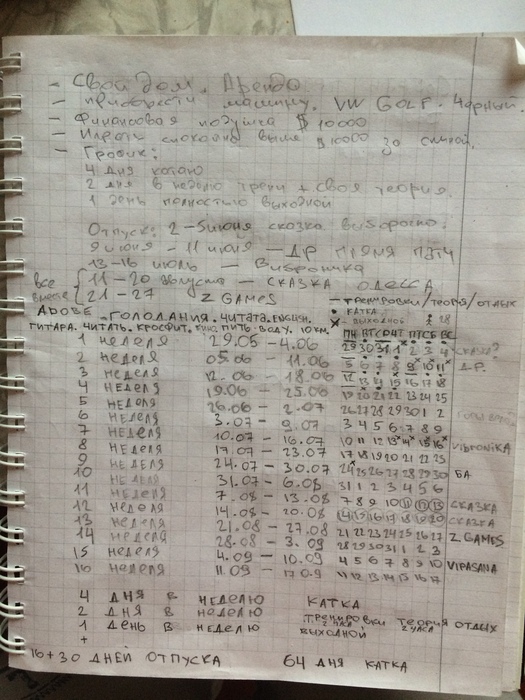 - Свой дом. Аренда
- приобрести машину. VW GOLF. Чорный
- Финансовая подушка $ 10000
- Играть спокойно выше $1000 за
- График:
4 дня катаю
2 дня в неделю трени + своя теория.
1 день полностью выходной
Отпуск: 2-5 июня сказка
9 июня - 11 июня - ДР ПРЯМЯ ПЯТЧ
13-16 июль - Виброника
все вместе { 11-20 августа - СКАЗКА ОДЕССА
21-27 Z GAMES
- ТРЕНИРОВКИ/ТЕОРИЯ/ОТДЫХ
• КАТКА
X - ВЫХОДНОЕ 18
ADOBE. ГОЛОДАНИЯ. ЧИТАТА. ENGLISH.
ГИТАРА. ЧИТАТЬ. КРОСФИТ. КИНО. ПИТЬ. ВОДУ. 10 КМ.
ПН ВТ СР ЧТ ПТ СБ ВС
1 неделя 29.05 - 4.06 29 30 31 1 2 3 4 СКАЗКА?
2 неделя 05.06 - 11.06 5 6 7 8 9 10 11 Д.Р.
3 неделя 12.06 - 18.06 12 13 14 15 16 17 18
4 неделя 19.06 - 25.06 19 20 21 22 23 24 25
5 неделя 26.06 - 2.07 26 27 28 29 30 1 2
6 неделя 3.07 - 9.07 3 4 5 6 7 8 9
7 неделя 10.07 - 16.07 10 11 12 13 14 15 16 VIBRONIKA
8 неделя 17.07 - 23.07 17 18 19 20 21 22 23
9 неделя 24.07 - 30.07 24 25 26 27 28 29 30 БА
10 неделя 31.07 - 6.08 31 1 2 3 4 5 6
11 неделя 7.08 - 13.08 7 8 9 10 11 12 13 СКАЗКА
12 неделя 14.08 - 20.08 14 15 16 17 18 19 20 СКАЗКА
13 неделя 21.08 - 27.08 21 22 23 24 25 26 27 Z GAMES
14 неделя 28.08 - 3.09 28 29 30 31 1 2 3
15 неделя 4.09 - 10.09 4 5 6 7 8 9 10 VIPASANA
16 неделя 11.09 - 17.09 11 12 13 14 15 16 17
4 ДНЯ В НЕДЕЛЮ КАТКА
2 ДНЯ В НЕДЕЛЮ ТРЕНИРОВКИ 2 ЧАСА ТЕОРИЯ 2 ЧАСА ОТДЫХ
1 ДЕНЬ В НЕДЕЛЮ ВЫХОДНОЙ
+
16+30 ДНЕЙ ОТПУСКА 64 ДНЯ КАТКА